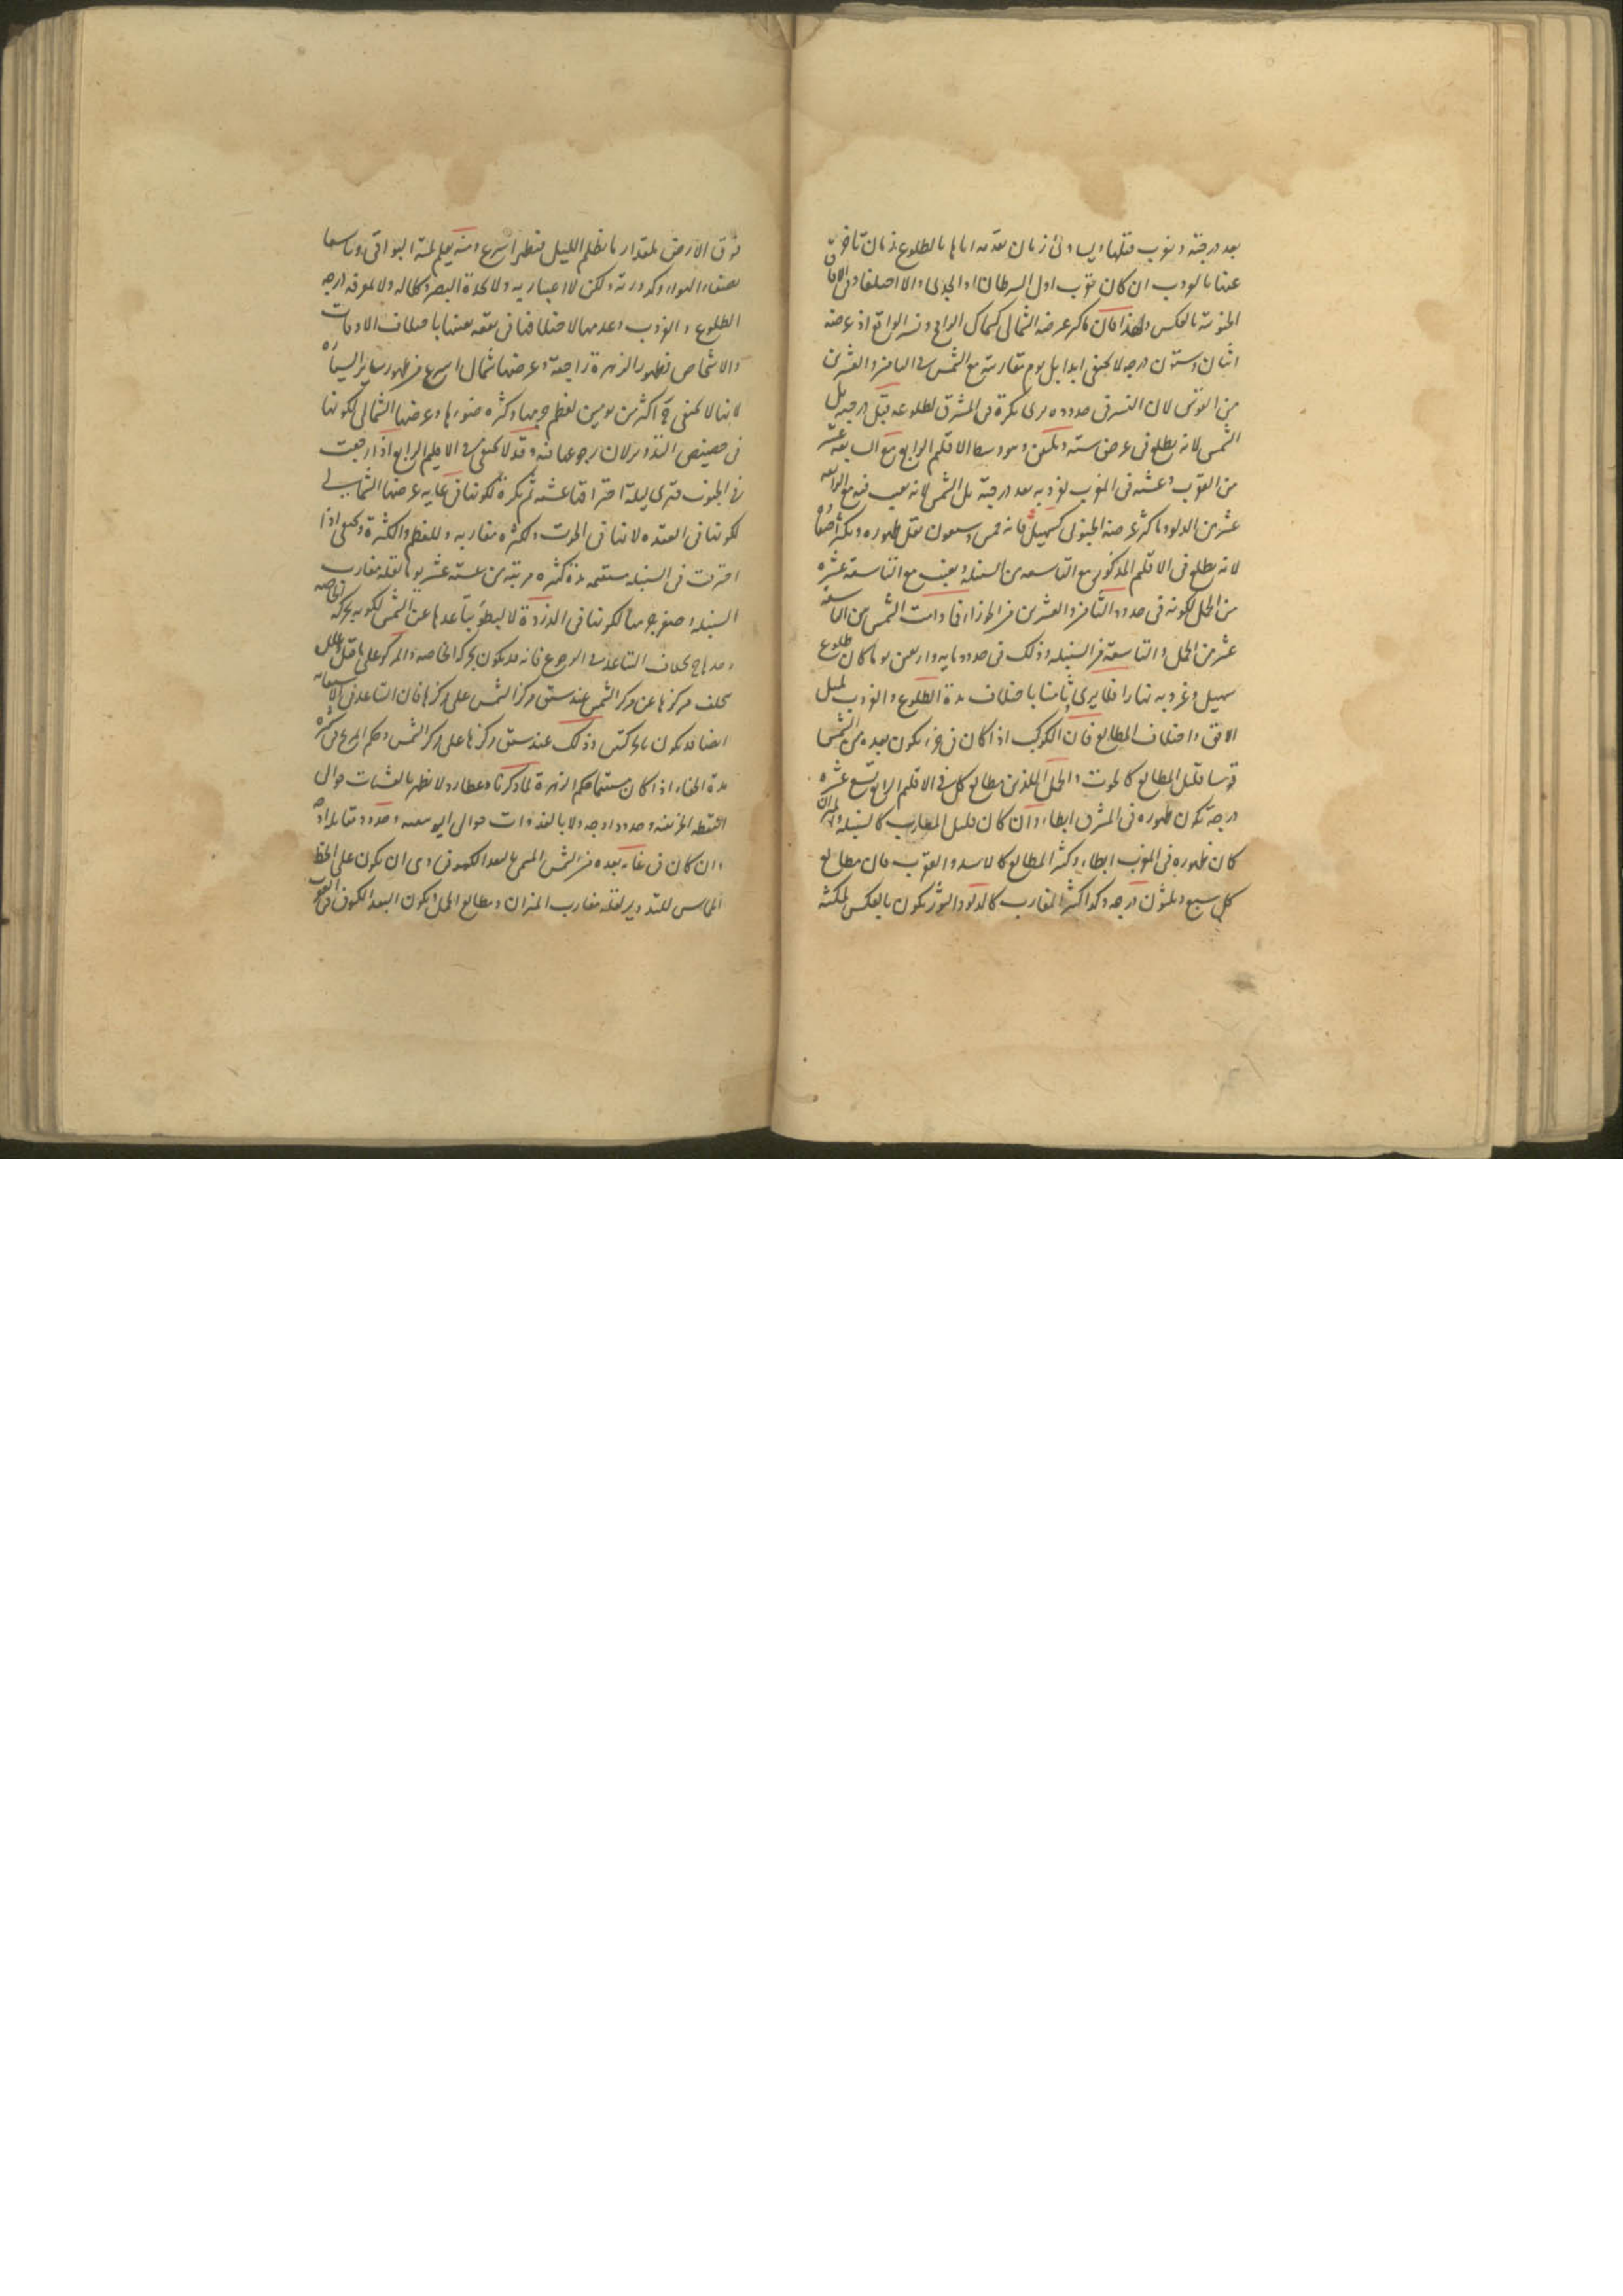 بعد درجته وبغرب قبلها ويساوى زمان تقدمه اياها بالطلوع زمان تاخره
عنها بالغروب ان كان بقرب اول السرطان او الجدى والا اختلفا وفى الافاق
الجنوبية بالعكس ولهذا فان ماكثر عرضه الشمالى كسماك الرامح ونسر الواقع اذ عرضه
اثنان وستون درجه لا يختفى ابدا بل يوم مقارنته مع الشمس فى الثامن والعشرين
من القوس لان النسر فى حدوده يرى بكرة فى المشرق لطلوعه قبل درجته بل
الشمس لانه يطلع فى عرض ستة وثلثين وهو وسط الاقليم الرابع مع السابعة عشر
من العقرب وعشية فى المغرب لغروبه بعد درجته بل الشمس لانه يغيب فيه مع الرابعة
عشر من الدلو وماكثر عرضه الجنوبى كسهيل فانه خمس وسبعون يقل ظهوره ويكثر اختفاؤه
لانه يطلع فى الاقليم المذكور مع التاسعه من السنبله ويغيب مع التاسعة عشره
من الحمل لكونه فى حدود الثامن والعشرين من الجوزا فما دامت الشمس بين التاسعة
عشر من الحمل والتاسعة من السنبله وذلك فى حدود مايه واربعين يوما كان طلوع
سهيل وغروبه نهارا فلا يرى وثامنها باختلاف مدة الطلوع والغروب لميل
الافق واختلاف المطالع فان الكوكب اذا كان فى جزء يكون بعده من الشمس
قوسا قليل المطالع كالحوت والحمل اللذين مطالع كل فى الاقليم الرابع تسع عشره
درجة يكون ظهوره فى المشرق ابطاء وان كان قليل المغارب كالسنبله والميزان
كان ظهوره فى المغرب ابطاء وكثر المطالع كالاسد والعقرب فان مطالع
كل سبع وثلثون درجه وكذا كثير المغارب كالدلو والثور يكون بالعكس لمكثه
فوق الارض بمقدار ما يظلم الليل فيظهر اسرع ومنه يعلم لمية البواقى وتاسعها
بصفاء الهواء وكدورته ولكن لا اعتبار به ولا بحدة البصر وكلاله ولا بمعرفه درجه
الطلوع والغروب وعدمها لاختلافها فى بقعه بعينها باختلاف الاوقات
والاشخاص فظهور الزهرة راجعة وعرضها شمالى اسرع من ظهور ساير السياره
لانها لا تختفى ح اكثر من يومين لعظم جرمها وكثره ضوءها وعرضها الشمالى لكونها
فى حضيض التدوير لان رجوعها فيه وقد لا تختفى فى الاقليم الرابع اذا رجعت
فى الحوت فترى ليلة احتراقها عشيه ثم بكرة لكونها فى غايه عرضها الشمالى
لكونها فى العقده لانها فى الحوت ولكثره مغاربه وللعظم والكثرة وتختفى اذا
احترقت فى السنبله مستقيمه مدة كثيره قريبه من سته عشر يوما لقله مغارب
السنبله وصغر جرمها لكونها فى الذروة لا لبطؤ تباعدها عن الشمس لكونه بحركه الخاصه
وحدها ح بخلاف التباعد فى الرجوع فانه قد يكون بحركة الخاصه والمركز على ما قيل
تخلف مركزها عن مركز الشمس عند سبق مركز الشمس على مركزها فان التباعد فى الاستقامه
ايضا قد يكون بالحركتين وذلك عند سبق مركزها على مركز الشمس وحكم المريخ فى كثره
مدة الخفاء اذا كان مستقيما حكم الزهرة لما ذكرنا وعطارد لا يظهر بالعشيات حوالى
النقطه الخريفيه وحدود اوجه ولا بالغدوات حوالى الربيعيه وحدود مقابله اوجه
وان كان فى غايه بعده من الشمس المسمى بالبعد الكسوفى وهى ان يكون على الخط
المماس للتدوير لقله مغارب الميزان ومطالع الحمل ويكون البعد الكسوفى